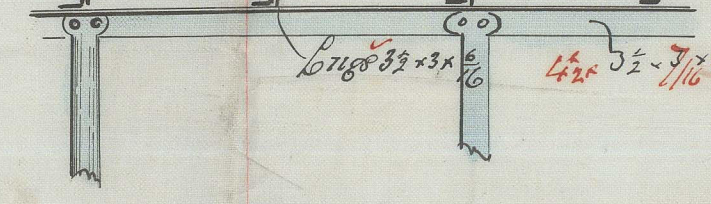 Lugs 3½ × 3 × 6/16 4½ × 3½ × 7/16